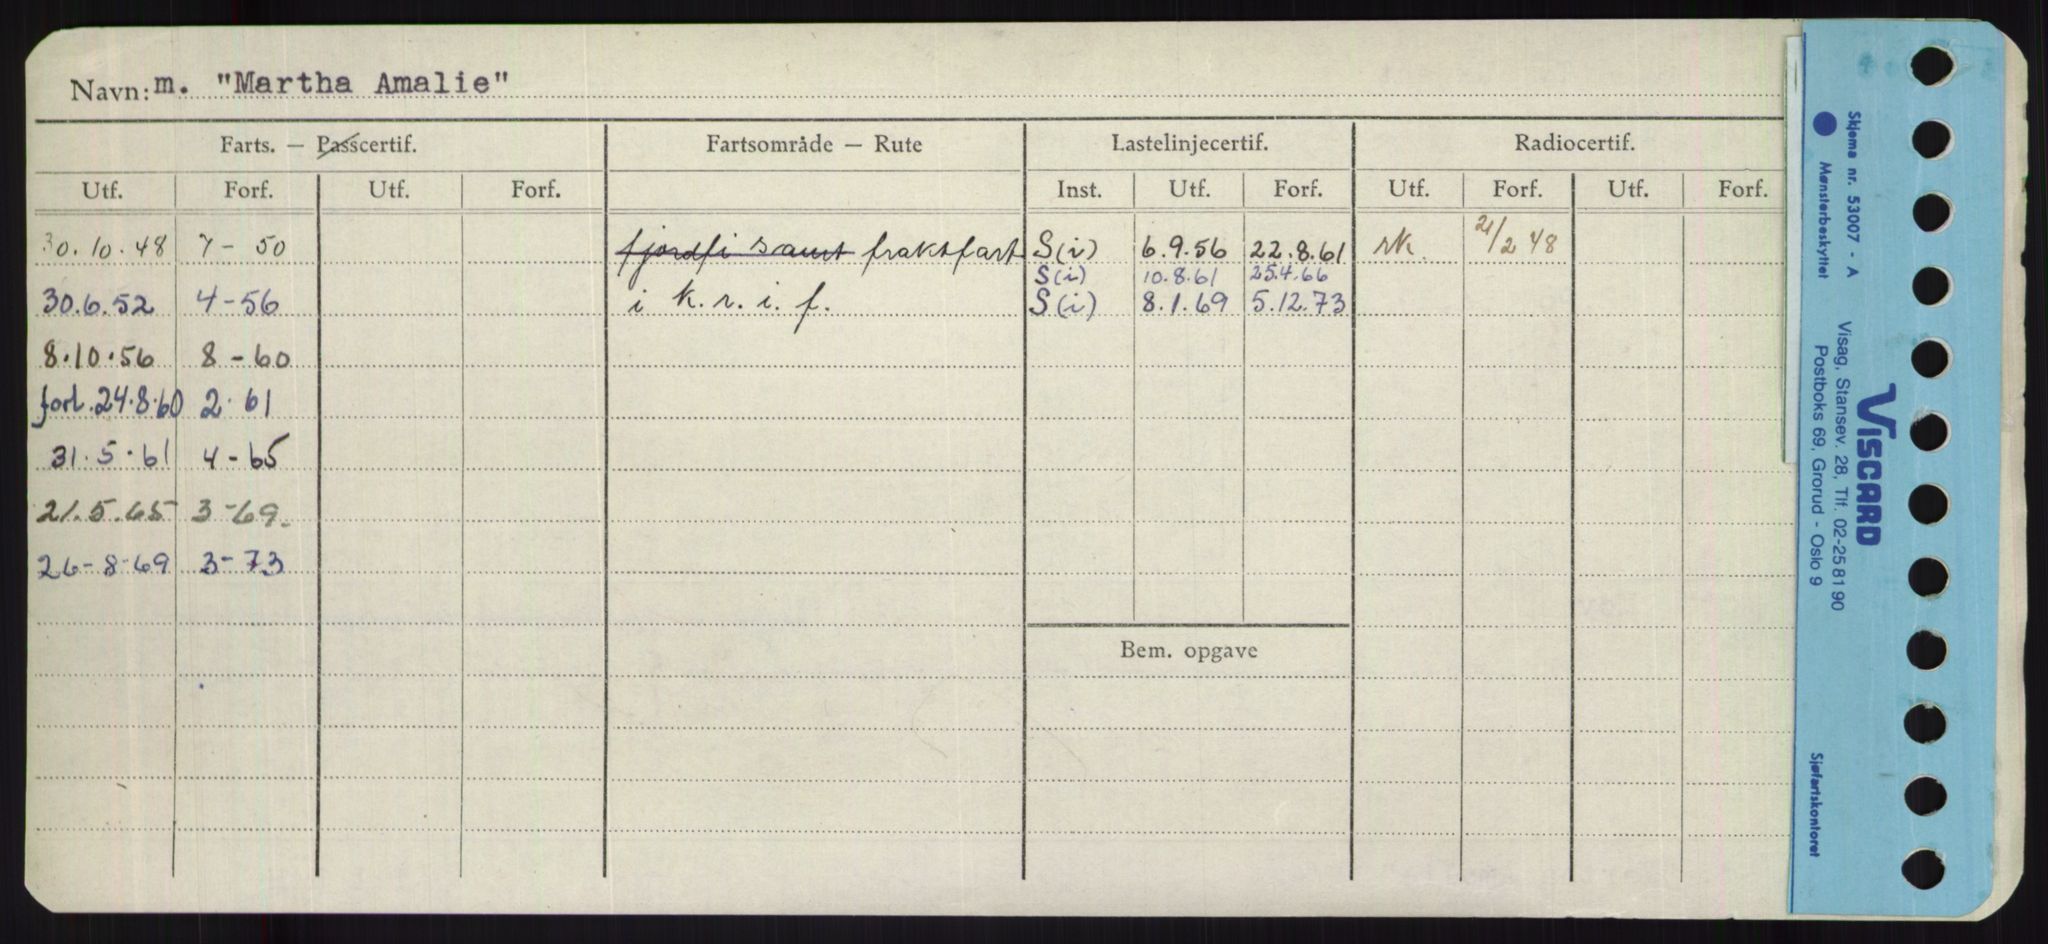 Navn: m. "Martha Amalie"
Farts. — Passcertif. Fartsområde — Rute Lastelinjecertif. Radiocertif.
Utf. Forf. Utf. Forf. Inst. Utf. Forf. Utf. Forf. Utf. Forf.
30.10.48 7 - 50 fjordfi samt fraktfart S(i) 6.9.56 22.8.61 rk. 21/2 48
S(i) 10.8.61 25.4.66
30.6.52 4 - 56 i k.r.i.f. S(i) 8.1.69 5.12.73
8.10.56 8 - 60
forl. 24.8.60 2.61
31.5.61 4 - 65
21.5.65 3 - 69.
26-8-69 3 - 73
Bem. opgave
Skjema nr. 53007 - A
Mønsterbeskyttet
VISCARD
Visag, Stansev. 28, Tlf. 02-25 81 90
Postboks 69, Grorud - Oslo 9
Sjøfartskontoret